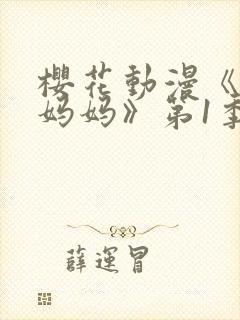 櫻花動漫《
妈妈》第1季
薛運冒